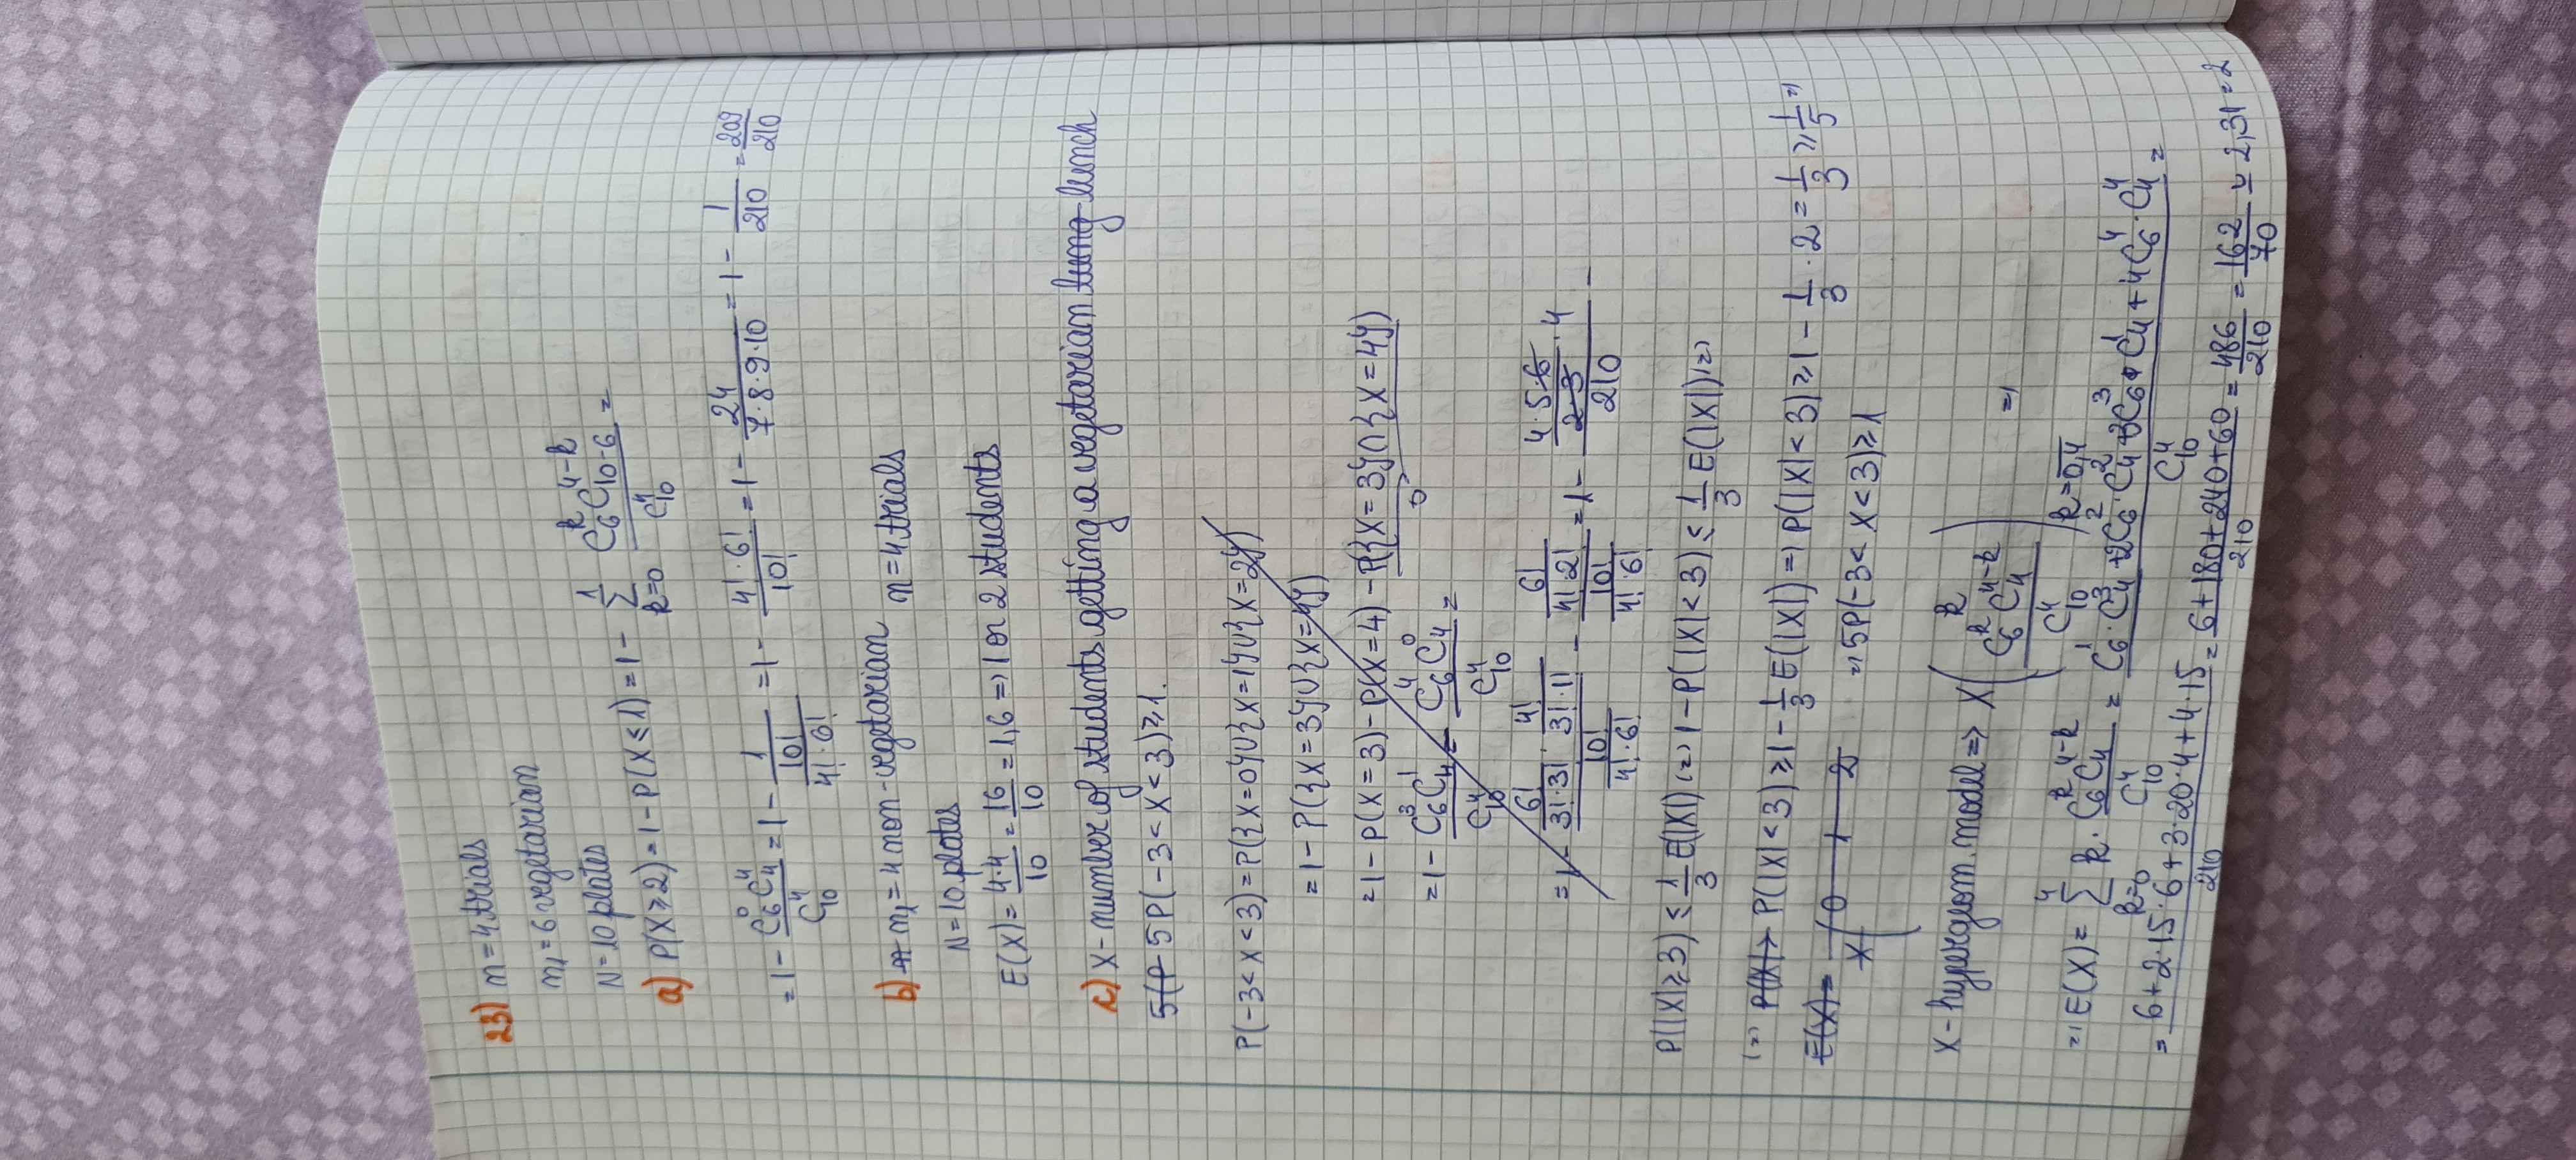 23) n = 4 trials
n₁ = 6 vegetarian
N = 10 plates
a) P(X ≥ 2) = 1 - P(X ≤ 1) = 1 - ∑_{k=0}^{1} (C_6^k C_{10-6}^{4-k})/(C_10^4) =
= 1 - (C_6^0 C_4^4)/(C_10^4) = 1 - 1/(10!/(4!·6!)) = 1 - (4!·6!)/10! = 1 - 24/(7·8·9·10) = 1 - 1/210 = 209/210
b) n₁ = 4 non-vegetarian n = 4 trials
N = 10 plates
E(X) = (4·4)/10 = 16/10 = 1,6 => 1 or 2 students
c) X - number of students getting a vegetarian lung lunch
5(P 5P(-3 < X < 3) ≥ 1.
P(-3 < X < 3) = P({X=0}∪{X=1}∪{X=2})
= 1 - P({X=3}∪{X=4})
= 1 - P(X=3) - P(X=4) - P({X=3}∩{X=4})
0
= 1 - (C_6^3 C_4^1)/(C_10^4) - (C_6^4 C_4^0)/(C_10^4) =
= 1 - (6!/(3!·3!) · 4!/(3!·1!))/(10!/(4!·6!)) - (6!/(4!·2!))/(10!/(4!·6!)) = 1 - ((4·5·6)/(2·3) · 4)/210 -
P(|X| ≥ 3) ≤ 1/3 E(|X|) (=) 1 - P(|X| < 3) ≤ 1/3 E(|X|) (=)
(=) P(X) > P(|X| < 3) ≥ 1 - 1/3 E(|X|) => P(|X| < 3) ≥ 1 - 1/3 · 2 = 1/3 ≥ 1/5 =>
E(X) = X | 0 1 2 => 5P(-3 < X < 3) ≥ 1
X - hypergeom. model => X (k / (C_6^k C_4^{4-k})/(C_10^4)) k = 0,4 =>
=> E(X) = ∑_{k=0}^{4} k · (C_6^k C_4^{4-k})/(C_10^4) = (C_6^1 · C_4^3 + 2C_6^2 · C_4^2 + 3C_6^3 · C_4^1 + 4C_6^4 · C_4^4)/(C_10^4) =
= (6 + 2·15·6 + 3·20·4 + 4·15)/210 = (6 + 180 + 240 + 60)/210 = 486/210 = 162/70 ≃ 2,31 = 2